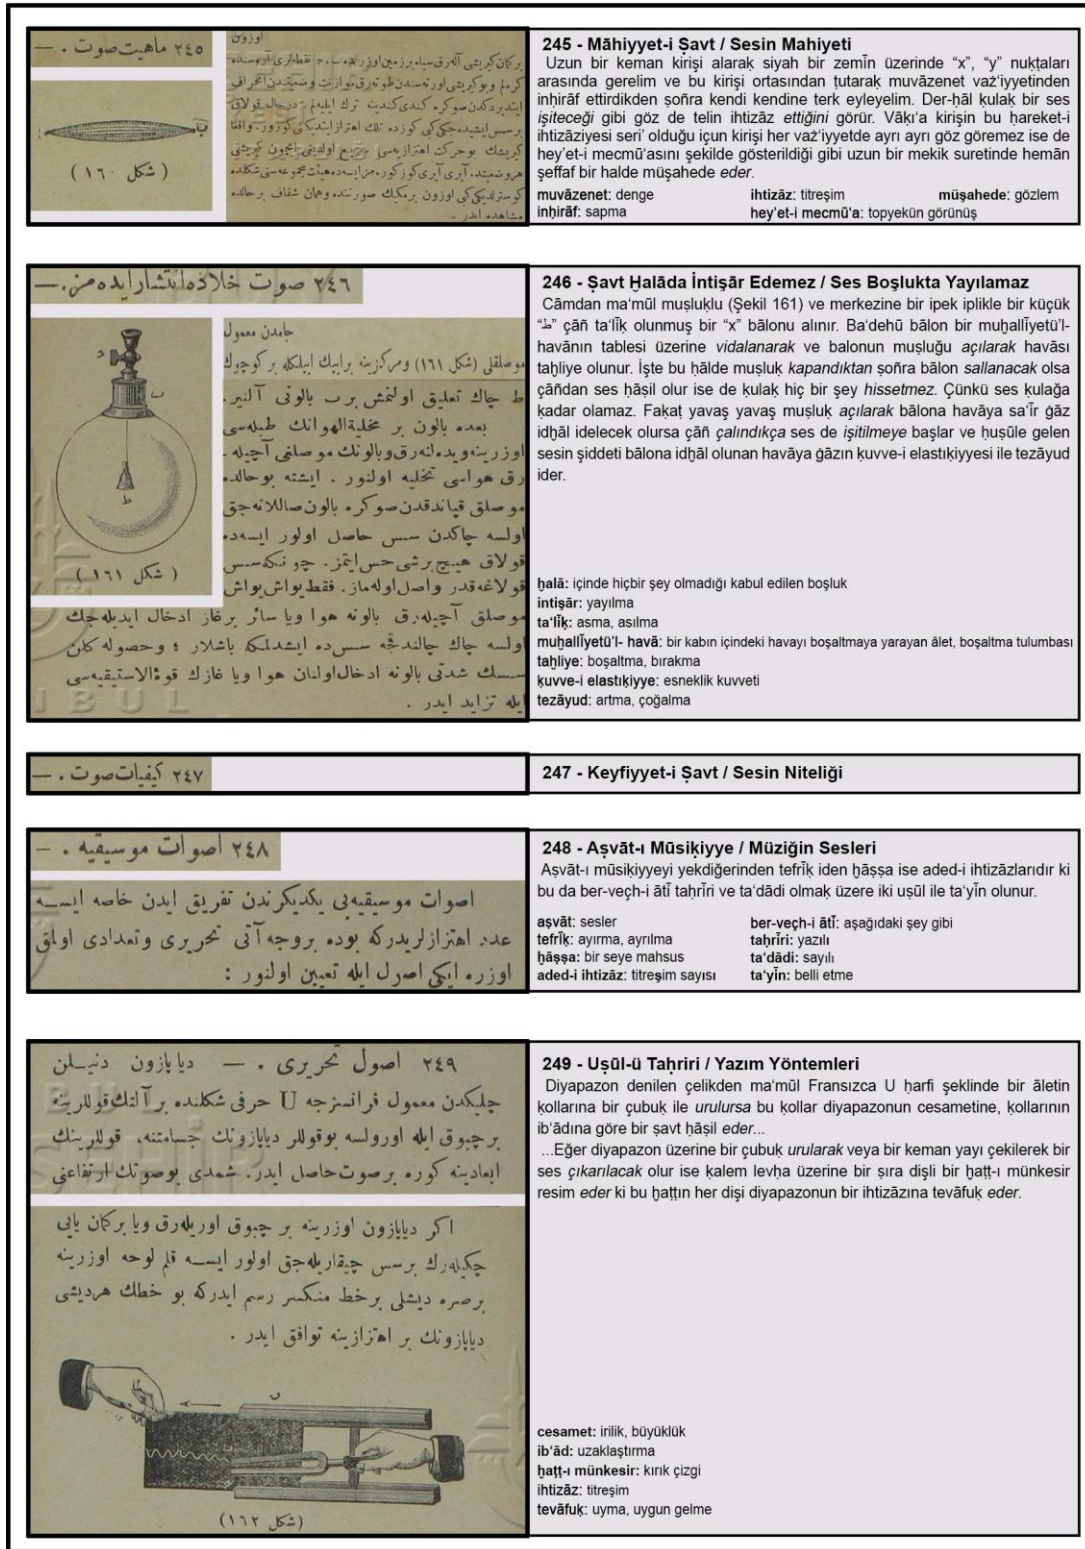 ٢٤٥ ماهيت صوت . —
( شكل ١٦٠ )
اوزون
بركمان كيريشى آله‌رق سياه بر زمين اوزرنده
245 - Māhiyyet-i Ṣavt / Sesin Mahiyeti
Uzun bir keman kirişi alaraḳ siyah bir zemīn üzerinde “x”, “y” nuḳṭaları
arasında gerelim ve bu kirişi ortasından ṭutaraḳ muvāzenet vaż‘iyyetinden
inḥirāf ettirdikden ṣoñra kendi kendine terk eyleyelim. Der-ḥāl ḳulaḳ bir ses
işiteceği gibi göz de telin ihtizāz ettiğini görür. Vāḳı‘a kirişin bu ḥareket-i
ihtizāziyesi seri’ olduğu içun kirişi her vaż‘iyyetde ayrı ayrı göz göremez ise de
hey’et-i mecmū‘asını şekilde gösterildiği gibi uzun bir mekik suretinde hemān
şeffaf bir halde müşahede eder.
muvāzenet: denge
ihtizāz: titreşim
müşahede: gözlem
inḥirāf: sapma
hey’et-i mecmū‘a: topyekün görünüş
٢٤٦ صوت خلاده انتشار ايده‌مز . —
( شكل ١٦١ )
جامدن معمول
موصلقلى (شكل ١٦١) ومركزينه برايپك ايپلكله بر كوچوك
ط چاك تعليق اولنمش بر ب بالونى آلنير .
بعده بالون بر مخلية‌الهوانك طبله‌سى
اوزرينه ويده‌لنه‌رق وبالونك موصلغى آچيله
رق هواسى تخليه اولنور . ايشته بوحالده
موصلق قپاندقدن صوكره بالون صاللانه‌جق
اولسه چاكدن سس حاصل اولور ايسه‌ده
قولاق هيچ برشى حس ايتمز . چونكه سس
قولاغه قدر واصل اوله‌ماز . فقط يواش يواش
موصلق آچيله‌رق بالونه هوا ويا سائر برغاز ادخال ايديله‌جك
اولسه چاك چالندقجه سس‌ده ايشدلمكه باشلار ؛ وحصوله كلن
سسك شدتى بالونه ادخال اولنان هوا ويا غازك قوة‌الاستيقيه‌سى
ايله تزايد ايدر .
246 - Ṣavt Ḫalāda İntişār Edemez / Ses Boşlukta Yayılamaz
Cāmdan ma‘mūl muṣluḳlu (Şekil 161) ve merkezine bir ipek iplikle bir küçük
“ط” çāñ ta‘līḳ olunmuş bir “x” bālonu alınır. Ba‘dehū bālon bir muḫallīyetü’l-
havānın tablesi üzerine vidalanarak ve balonun muṣluğu açılarak havāsı
taḫliye olunur. İşte bu ḥālde muṣluḳ kapandıktan ṣoñra bālon sallanacak olsa
çāñdan ses ḥāṣil olur ise de ḳulaḳ hiç bir şey hissetmez. Çünkü ses ḳulağa
ḳadar olamaz. Faḳaṭ yavaş yavaş muṣluḳ açılarak bālona havāya sa‘īr ġāz
idḫāl idelecek olursa çāñ çalındıkça ses de işitilmeye başlar ve ḥuṣūle gelen
sesin şiddeti bālona idḫāl olunan havāya ġāzın ḳuvve-i elastıḳiyyesi ile tezāyud
ider.
ḫalā: içinde hiçbir şey olmadığı kabul edilen boşluk
intişār: yayılma
ta‘līḳ: asma, asılma
muḫallīyetü’l- havā: bir kabın içindeki havayı boşaltmaya yarayan âlet, boşaltma tulumbası
taḫliye: boşaltma, bırakma
ḳuvve-i elastıḳiyye: esneklik kuvveti
tezāyud: artma, çoğalma
٢٤٧ كيفيات صوت . —
247 - Keyfiyyet-i Ṣavt / Sesin Niteliği
٢٤٨ اصوات موسيقيه . —
اصوات موسيقيه‌يى يكديكرندن تفريق ايدن خاصه ايسه
عدد اهتزازلريدركه بوده بروجه آتى تحريرى وتعدادى اولمق
اوزره ايكى اصول ايله تعيين اولنور :
248 - Aṣvāt-ı Mūsiḳiyye / Müziğin Sesleri
Aṣvāt-ı mūsiḳiyyeyi yekdiğerinden tefrīḳ iden ḫāṣṣa ise aded-i ihtizāzlarıdır ki
bu da ber-veçh-i ātī taḥrīri ve ta‘dādi olmaḳ üzere iki uṣūl ile ta‘yīn olunur.
aṣvāt: sesler
ber-veçh-i ātī: aşağıdaki şey gibi
tefrīḳ: ayırma, ayrılma
taḥrīri: yazılı
ḫāṣṣa: bir seye mahsus
ta‘dādi: sayılı
aded-i ihtizāz: titreşim sayısı
ta‘yīn: belli etme
٢٤٩ اصول تحريرى . — دياپازون دنيلن
چليكدن معمول فرانسزجه U حرفى شكلنده بر آلتك قوللرينه
برچبوق ايله اورولسه بوقوللر دياپازونك جسامتنه، قوللرينك
ابعادينه كوره برصوت حاصل ايدر . شمدى بوصوتك ارتفاعنى
اكر دياپازون اوزرينه بر چبوق اوريله‌رق ويا بركمان يايى
چكيله‌رك برسس چيقاريله‌جق اولور ايسه قلم لوحه اوزرينه
برصره ديشلى برخط منكسر رسم ايدركه بو خطك هرديشى
دياپازونك بر اهتزازينه توافق ايدر .
(شكل ١٦٢)
249 - Uṣūl-ü Taḥriri / Yazım Yöntemleri
Diyapazon denilen çelikden ma‘mūl Fransızca U ḥarfi şeklinde bir āletin
ḳollarına bir çubuḳ ile urulursa bu kollar diyapazonun cesametine, ḳollarının
ib‘ādına göre bir ṣavt ḥāṣil eder...
...Eğer diyapazon üzerine bir çubuḳ urularak veya bir keman yayı çekilerek bir
ses çıkarılacak olur ise ḳalem levḥa üzerine bir ṣıra dişli bir ḫaṭṭ-ı münkesir
resim eder ki bu ḫaṭṭın her dişi diyapazonun bir ihtizāzına tevāfuḳ eder.
cesamet: irilik, büyüklük
ib‘ād: uzaklaştırma
ḫaṭṭ-ı münkesir: kırık çizgi
ihtizāz: titreşim
tevāfuḳ: uyma, uygun gelme